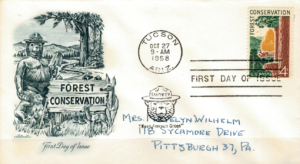 TUCSON
OCT 27
9-AM
1958
ARIZ.
FOREST CONSERVATION
4
FIRST DAY OF ISSUE
FOREST
CONSERVATION
First Day of Issue
MRS. WILHELM
118 SYCAMORE DRIVE
PITTSBURGH 37, PA.